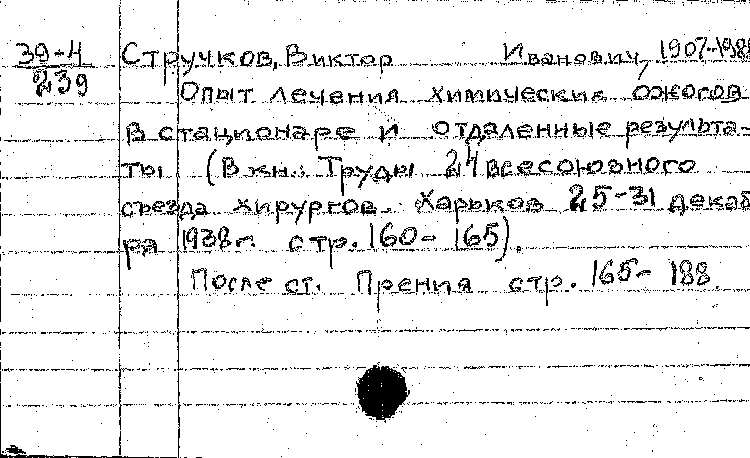 39-4 Стручков, Виктор Иванович, 1907-1988
239
Опыт лечения химических ожогов
в стационаре и отдаленные результа-
ты (В кн.: Труды 24 всесоюзного
съезда хирургов. Харьков 25-31 декаб
ря 1938г. стр. 160-165).
После ст. Прения стр. 165-188.